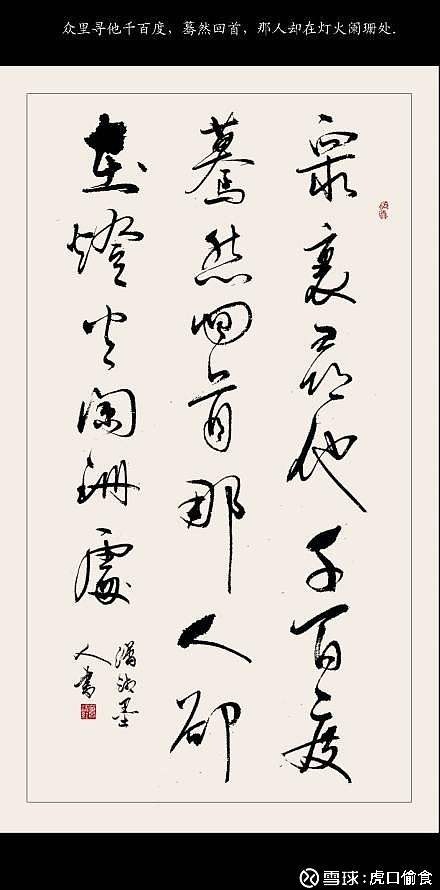 众里寻他千百度，蓦然回首，那人却在灯火阑珊处.
眾裏尋他千百度
驀然回首那人卻
在燈火闌珊處
瀟湘墨
人書
雪球：虎口偷食